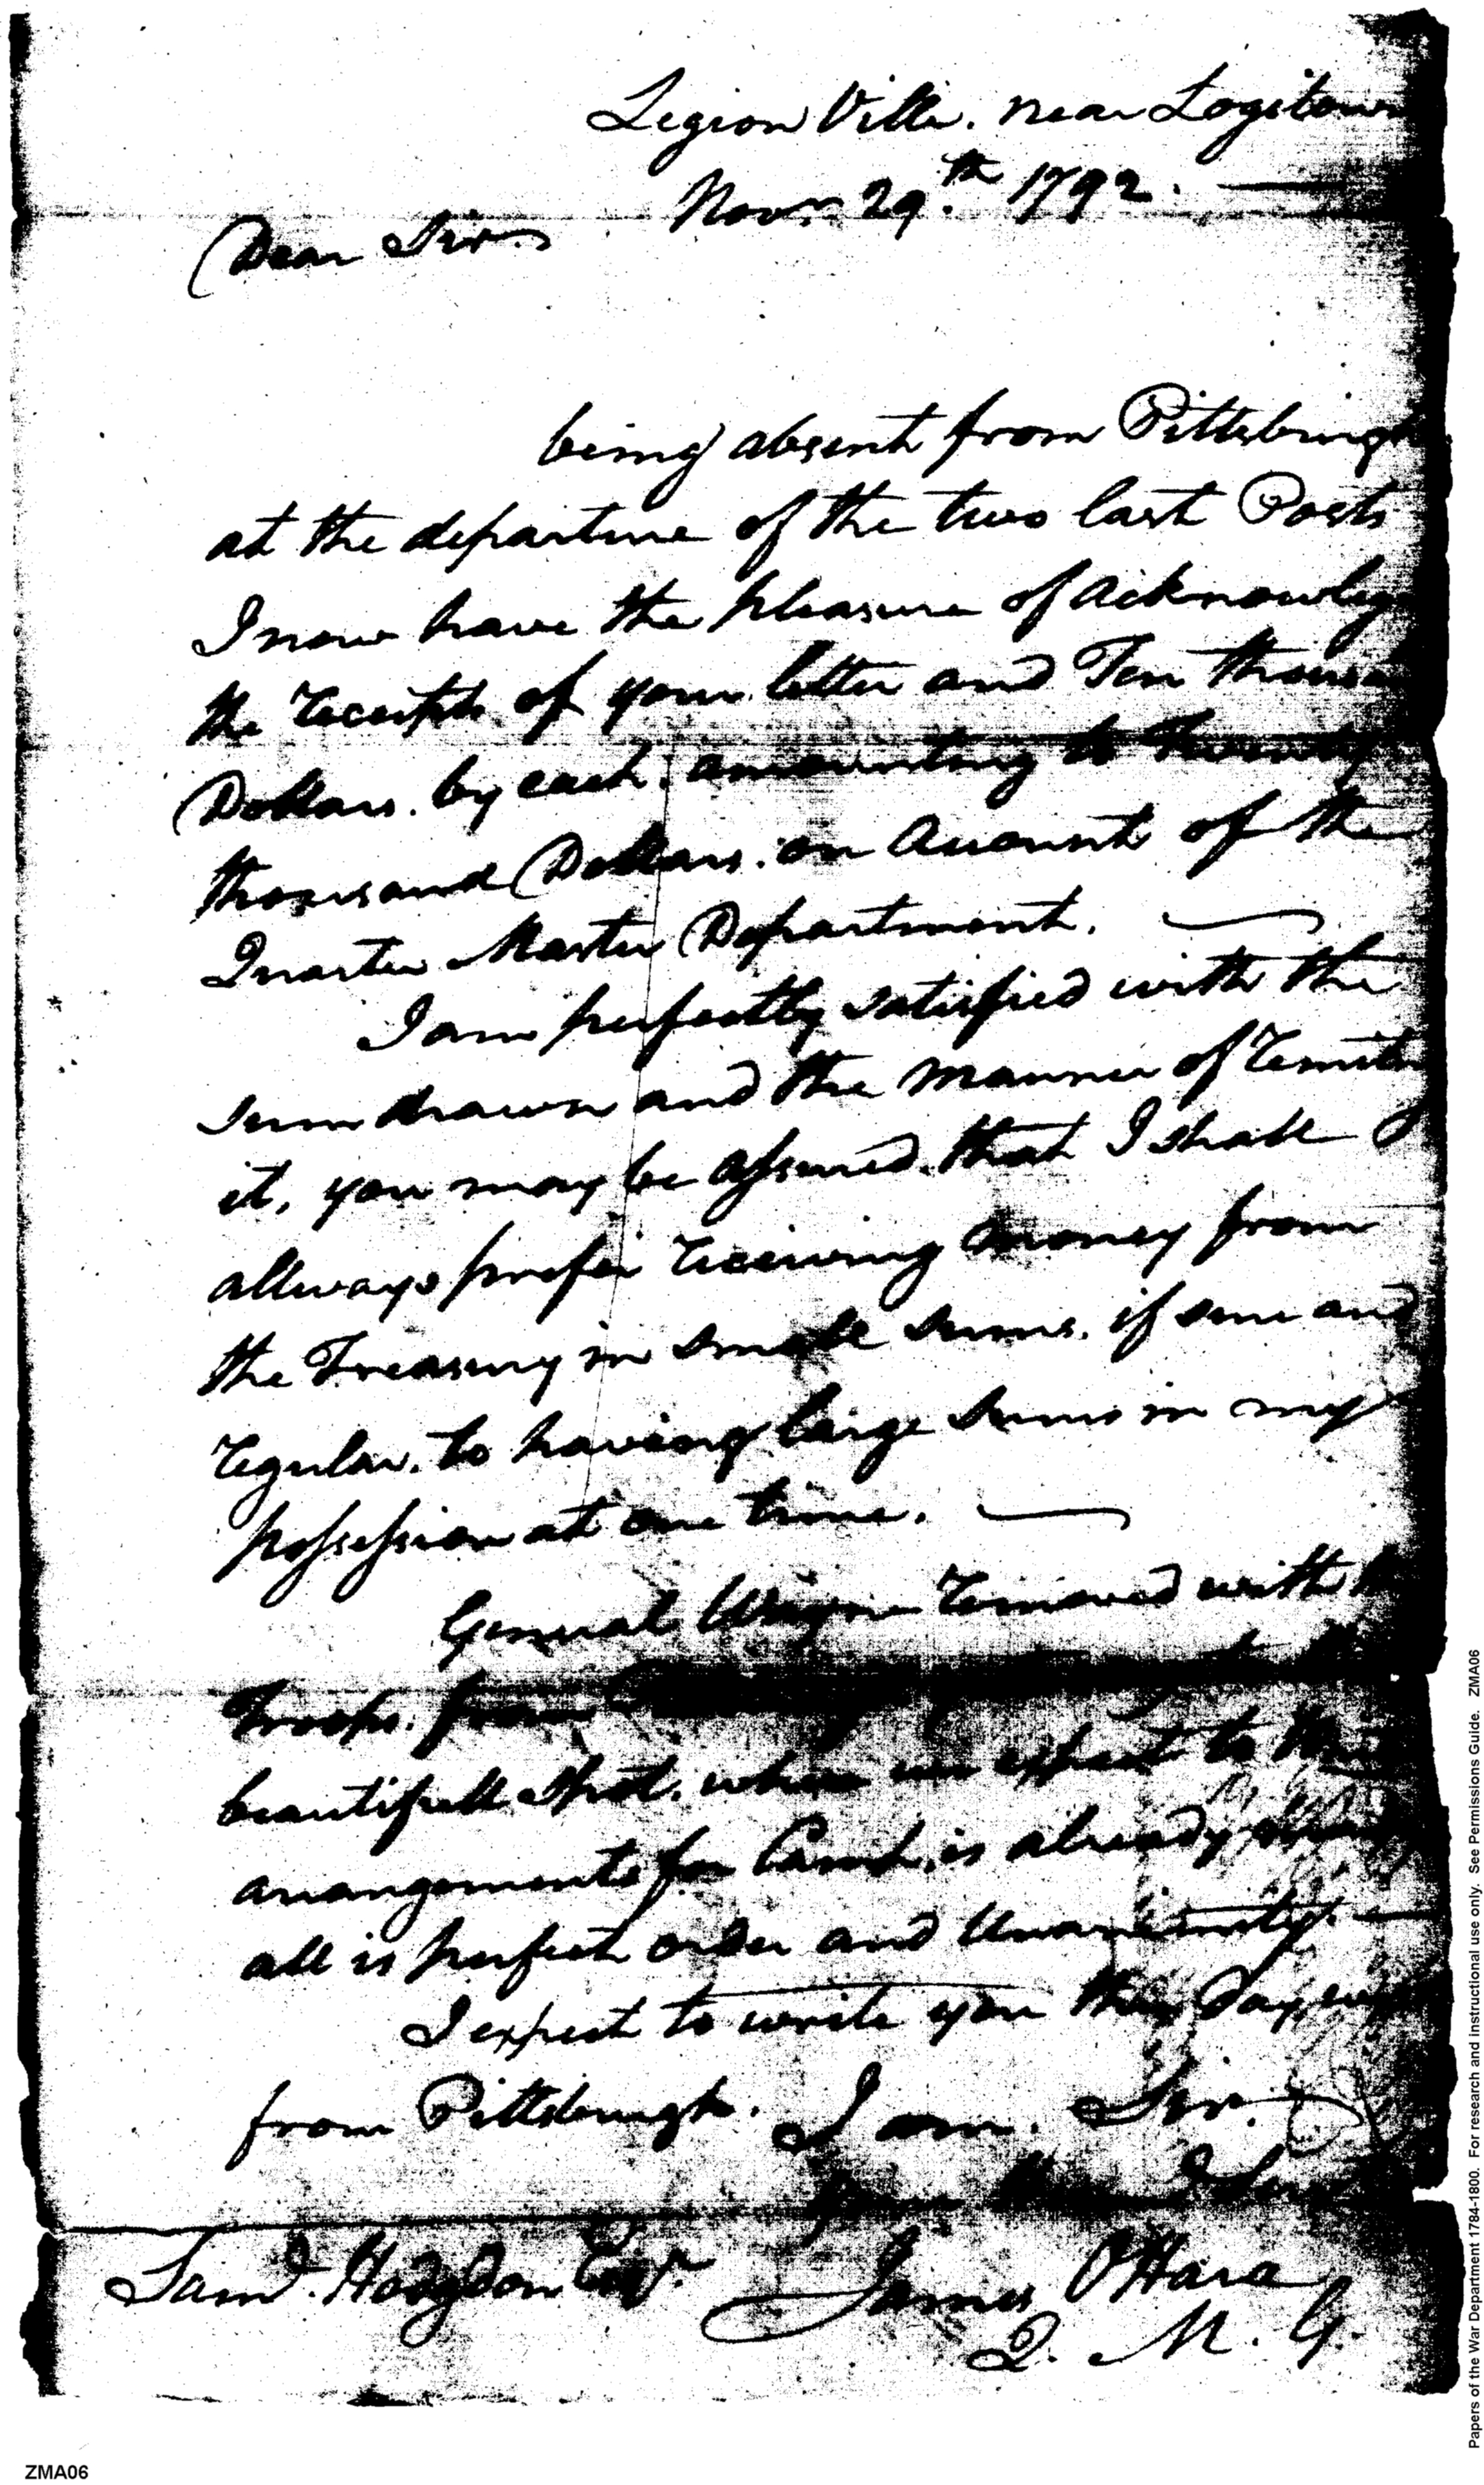 Legion Ville. near Logstown
Novr. 29th 1792.
Dear Sir
being absent from Pittsburgh
at the departure of the two last Posts
I now have the pleasure of acknowleg
the receipts of your letter and Ten thousan
Dollars. by each. amounting to Twenty
thousand Dollars. on account of the
Quarter Master Department.
I am perfectly satisfied with the
sum drawn and the manner of remitn
it, you may be assured. that I shall
allways prefer receiving money from
the Treasury in small sums. if sure and
regular. to having large sums in my
possession at one time.
General Wayne removed with
Troops. from
beautifull spot. where we expect to
arrangements for Camp. is already
all is perfect order and Unanimity.
I expect to write you this day
from Pittsburgh. I am. Sir.
your
Saml. Hodgdon Esqr.
James OHara
Q. M. G.
Papers of the War Department 1784-1800. For research and instructional use only. See Permissions Guide. ZMA06
ZMA06